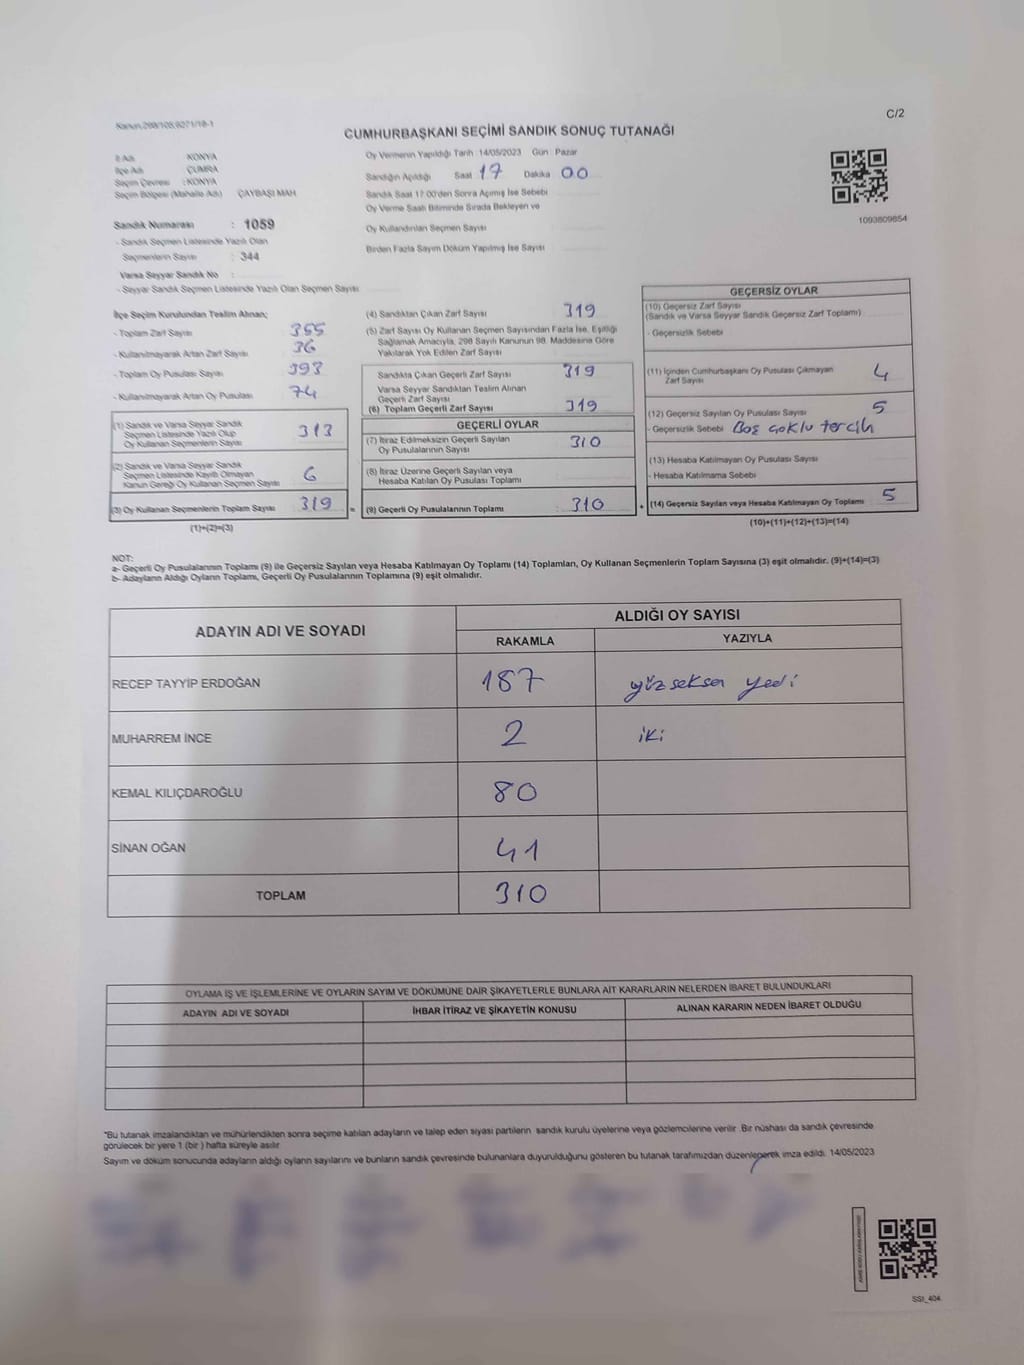 Kanun,298/105,6271/18-1
C/2
CUMHURBAŞKANI SEÇİMİ SANDIK SONUÇ TUTANAĞI
İl Adı KONYA
İlçe Adı ÇUMRA
Seçim Çevresi : KONYA
Seçim Bölgesi (Mahalle Adı) ÇAYBAŞI MAH.
Sandık Numarası : 1059
- Sandık Seçmen Listesinde Yazılı Olan
Seçmenlerin Sayısı : 344
Varsa Seyyar Sandık No :
- Seyyar Sandık Seçmen Listesinde Yazılı Olan Seçmen Sayısı
Oy Vermenin Yapıldığı Tarih :14/05/2023 Gün Pazar
Sandığın Açıldığı Saat 17 Dakika 00
Sandık Saat 17:00'den Sonra Açılmış İse Sebebi
Oy Verme Saati Bitiminde Sırada Bekleyen ve
Oy Kullandırılan Seçmen Sayısı
Birden Fazla Sayım Döküm Yapılmış İse Sayısı
1093809854
İlçe Seçim Kurulundan Teslim Alınan;
- Toplam Zarf Sayısı 355
- Kullanılmayarak Artan Zarf Sayısı 36
- Toplam Oy Pusulası Sayısı 393
- Kullanılmayarak Artan Oy Pusulası 74
(1) Sandık ve Varsa Seyyar Sandık
Seçmen Listesinde Yazılı Olup
Oy Kullanan Seçmenlerin Sayısı 313
(2) Sandık ve Varsa Seyyar Sandık
Seçmen Listesinde Kayıtlı Olmayan
Kanun Gereği Oy Kullanan Seçmen Sayısı 6
(3) Oy Kullanan Seçmenlerin Toplam Sayısı 319 =
(1)+(2)=(3)
(4) Sandıktan Çıkan Zarf Sayısı 319
(5) Zarf Sayısı Oy Kullanan Seçmen Sayısından Fazla İse, Eşitliği
Sağlamak Amacıyla, 298 Sayılı Kanunun 98. Maddesine Göre
Yakılarak Yok Edilen Zarf Sayısı
Sandıkta Çıkan Geçerli Zarf Sayısı 319
Varsa Seyyar Sandıktan Teslim Alınan
Geçerli Zarf Sayısı
(6) Toplam Geçerli Zarf Sayısı 319
GEÇERLİ OYLAR
(7) İtiraz Edilmeksizin Geçerli Sayılan
Oy Pusulalarının Sayısı 310
(8) İtiraz Üzerine Geçerli Sayılan veya
Hesaba Katılan Oy Pusulası Toplamı
(9) Geçerli Oy Pusulalarının Toplamı 310 +
GEÇERSİZ OYLAR
(10) Geçersiz Zarf Sayısı
(Sandık ve Varsa Seyyar Sandık Geçersiz Zarf Toplamı)
- Geçersizlik Sebebi
(11) İçinden Cumhurbaşkanı Oy Pusulası Çıkmayan
Zarf Sayısı 4
(12) Geçersiz Sayılan Oy Pusulası Sayısı 5
- Geçersizlik Sebebi Boş çoklu tercih
(13) Hesaba Katılmayan Oy Pusulası Sayısı
- Hesaba Katılmama Sebebi
(14) Geçersiz Sayılan veya Hesaba Katılmayan Oy Toplamı 5
(10)+(11)+(12)+(13)=(14)
NOT:
a- Geçerli Oy Pusulalarının Toplamı (9) ile Geçersiz Sayılan veya Hesaba Katılmayan Oy Toplamı (14) Toplamları, Oy Kullanan Seçmenlerin Toplam Sayısına (3) eşit olmalıdır. (9)+(14)=(3)
b- Adayların Aldığı Oyların Toplamı, Geçerli Oy Pusulalarının Toplamına (9) eşit olmalıdır.
ADAYIN ADI VE SOYADI ALDIĞI OY SAYISI
RAKAMLA YAZIYLA
RECEP TAYYİP ERDOĞAN 187 yüzseksen yedi
MUHARREM İNCE 2 iki
KEMAL KILIÇDAROĞLU 80
SİNAN OĞAN 41
TOPLAM 310
OYLAMA İŞ VE İŞLEMLERİNE VE OYLARIN SAYIM VE DÖKÜMÜNE DAİR ŞİKAYETLERLE BUNLARA AİT KARARLARIN NELERDEN İBARET BULUNDUKLARI
ADAYIN ADI VE SOYADI İHBAR İTİRAZ VE ŞİKAYETİN KONUSU ALINAN KARARIN NEDEN İBARET OLDUĞU
*Bu tutanak imzalandıktan ve mühürlendikten sonra seçime katılan adayların ve talep eden siyasi partilerin sandık kurulu üyelerine veya gözlemcilerine verilir .Bir nüshası da sandık çevresinde
görülecek bir yere 1 (bir ) hafta süreyle asılır.
Sayım ve döküm sonucunda adayların aldığı oyların sayılarını ve bunların sandık çevresinde bulunanlara duyurulduğunu gösteren bu tutanak tarafımızdan düzenlenerek imza edildi. 14/05/2023
SSI_404